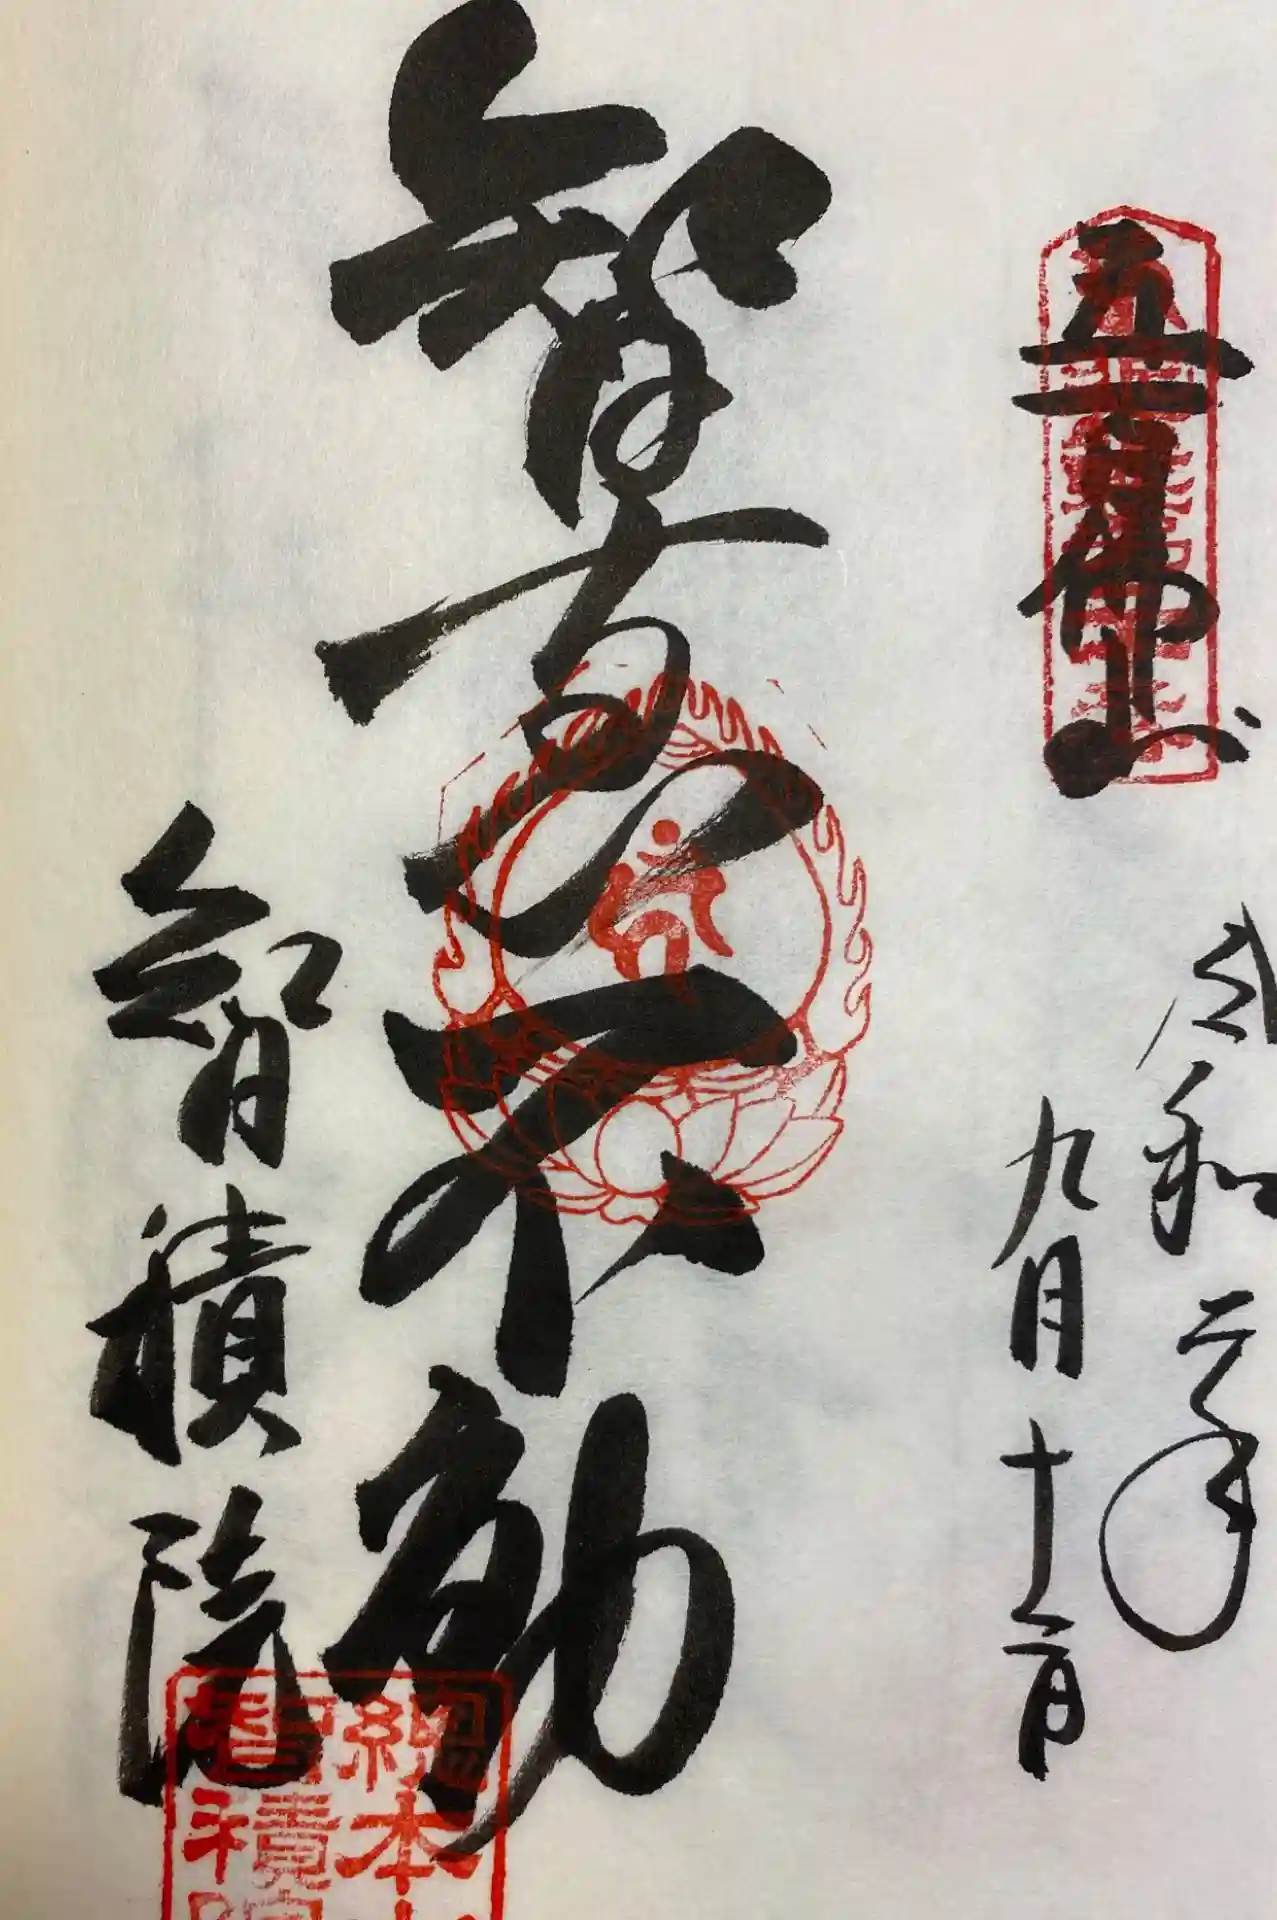 五百佛山
令和元年
九月十二日
智 不動
智積院
総本山
智積院